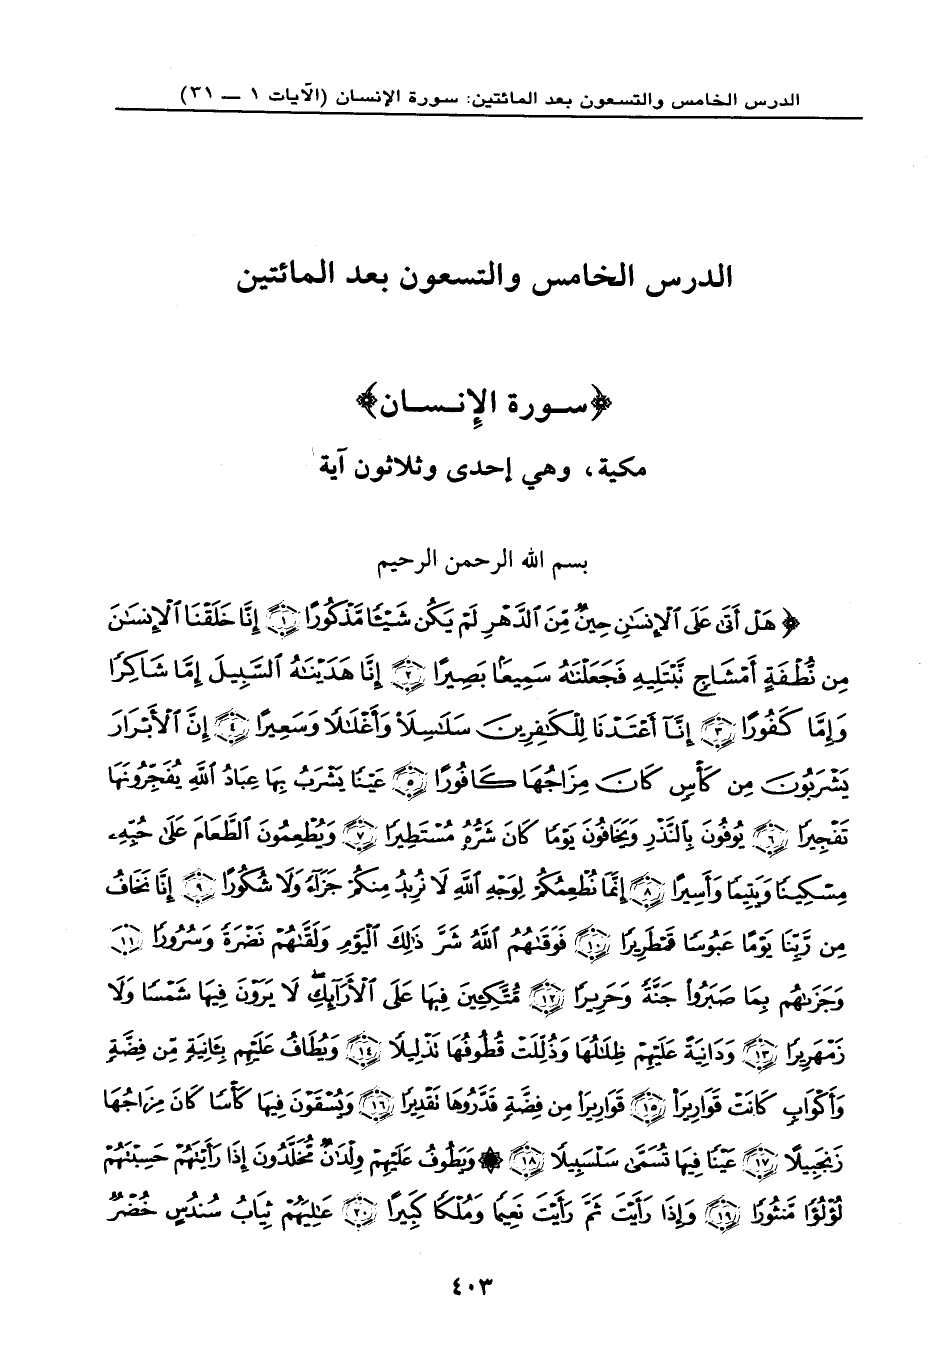 الدرس الخامس والتسعون بعد المائتين: سورة الإنسان (الآيات ١ — ٣١)
الدرس الخامس والتسعون بعد المائتين
﴿سورة الإنسان﴾
مكية، وهي إحدى وثلاثون آية
بسم الله الرحمن الرحيم
﴿ هَلْ أَتَىٰ عَلَى ٱلْإِنسَٰنِ حِينٌ مِّنَ ٱلدَّهْرِ لَمْ يَكُن شَيْـًٔا مَّذْكُورًا ۝١ إِنَّا خَلَقْنَا ٱلْإِنسَٰنَ
مِن نُّطْفَةٍ أَمْشَاجٍ نَّبْتَلِيهِ فَجَعَلْنَٰهُ سَمِيعًۢا بَصِيرًا ۝٢ إِنَّا هَدَيْنَٰهُ ٱلسَّبِيلَ إِمَّا شَاكِرًا
وَإِمَّا كَفُورًا ۝٣ إِنَّآ أَعْتَدْنَا لِلْكَٰفِرِينَ سَلَٰسِلَا۟ وَأَغْلَٰلًا وَسَعِيرًا ۝٤ إِنَّ ٱلْأَبْرَارَ
يَشْرَبُونَ مِن كَأْسٍ كَانَ مِزَاجُهَا كَافُورًا ۝٥ عَيْنًا يَشْرَبُ بِهَا عِبَادُ ٱللَّهِ يُفَجِّرُونَهَا
تَفْجِيرًا ۝٦ يُوفُونَ بِٱلنَّذْرِ وَيَخَافُونَ يَوْمًا كَانَ شَرُّهُۥ مُسْتَطِيرًا ۝٧ وَيُطْعِمُونَ ٱلطَّعَامَ عَلَىٰ حُبِّهِۦ
مِسْكِينًا وَيَتِيمًا وَأَسِيرًا ۝٨ إِنَّمَا نُطْعِمُكُمْ لِوَجْهِ ٱللَّهِ لَا نُرِيدُ مِنكُمْ جَزَآءً وَلَا شُكُورًا ۝٩ إِنَّا نَخَافُ
مِن رَّبِّنَا يَوْمًا عَبُوسًا قَمْطَرِيرًا ۝١٠ فَوَقَىٰهُمُ ٱللَّهُ شَرَّ ذَٰلِكَ ٱلْيَوْمِ وَلَقَّىٰهُمْ نَضْرَةً وَسُرُورًا ۝١١
وَجَزَىٰهُم بِمَا صَبَرُوا۟ جَنَّةً وَحَرِيرًا ۝١٢ مُّتَّكِـِٔينَ فِيهَا عَلَى ٱلْأَرَآئِكِ ۖ لَا يَرَوْنَ فِيهَا شَمْسًا وَلَا
زَمْهَرِيرًا ۝١٣ وَدَانِيَةً عَلَيْهِمْ ظِلَٰلُهَا وَذُلِّلَتْ قُطُوفُهَا تَذْلِيلًا ۝١٤ وَيُطَافُ عَلَيْهِم بِـَٔانِيَةٍ مِّن فِضَّةٍ
وَأَكْوَابٍ كَانَتْ قَوَارِيرَا۠ ۝١٥ قَوَارِيرَا۟ مِن فِضَّةٍ قَدَّرُوهَا تَقْدِيرًا ۝١٦ وَيُسْقَوْنَ فِيهَا كَأْسًا كَانَ مِزَاجُهَا
زَنجَبِيلًا ۝١٧ عَيْنًا فِيهَا تُسَمَّىٰ سَلْسَبِيلًا ۝١٨ ۞ وَيَطُوفُ عَلَيْهِمْ وِلْدَٰنٌ مُّخَلَّدُونَ إِذَا رَأَيْتَهُمْ حَسِبْتَهُمْ
لُؤْلُؤًا مَّنثُورًا ۝١٩ وَإِذَا رَأَيْتَ ثَمَّ رَأَيْتَ نَعِيمًا وَمُلْكًا كَبِيرًا ۝٢٠ عَٰلِيَهُمْ ثِيَابُ سُندُسٍ خُضْرٌ
٤٠٣